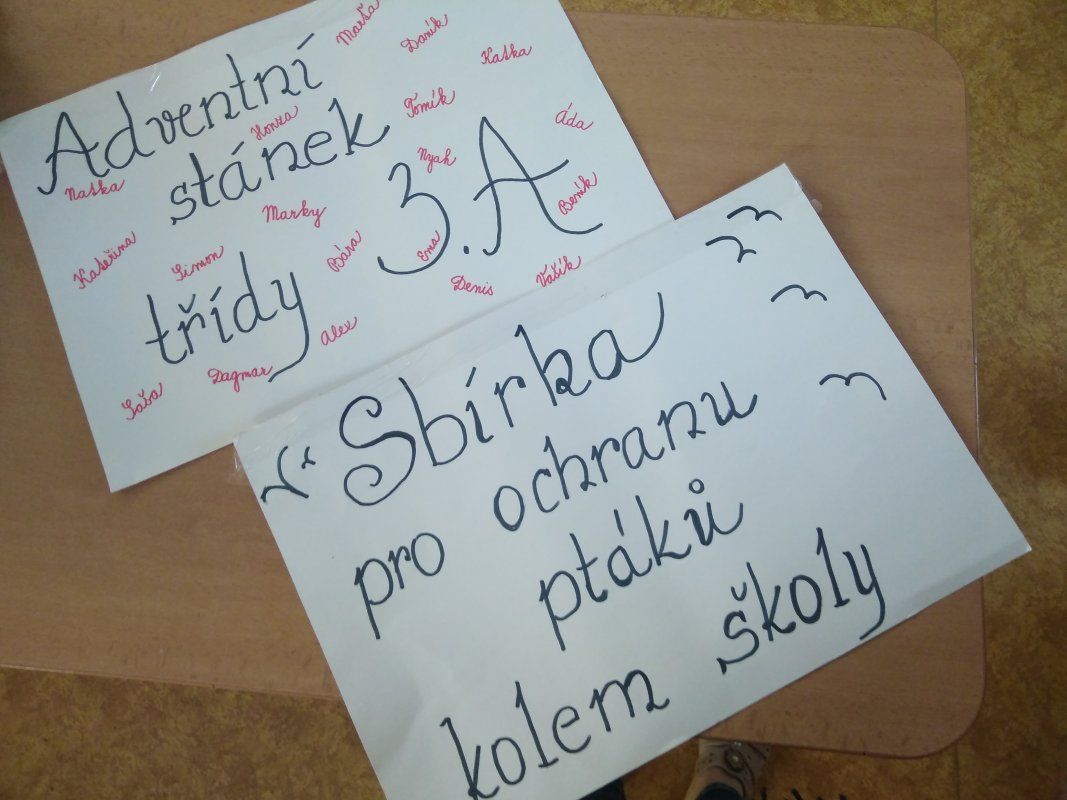 Adventní
stánek
třídy
3.A
Marťa
Daník
Katka
Honza
Tomík
Áda
Natka
Nyah
Marky
Beník
Kateřina
Simon
Bára
Ema
Denis
Vašík
Alex
Dagmar
Sába
Sbírka
pro ochranu
ptáků
kolem školy